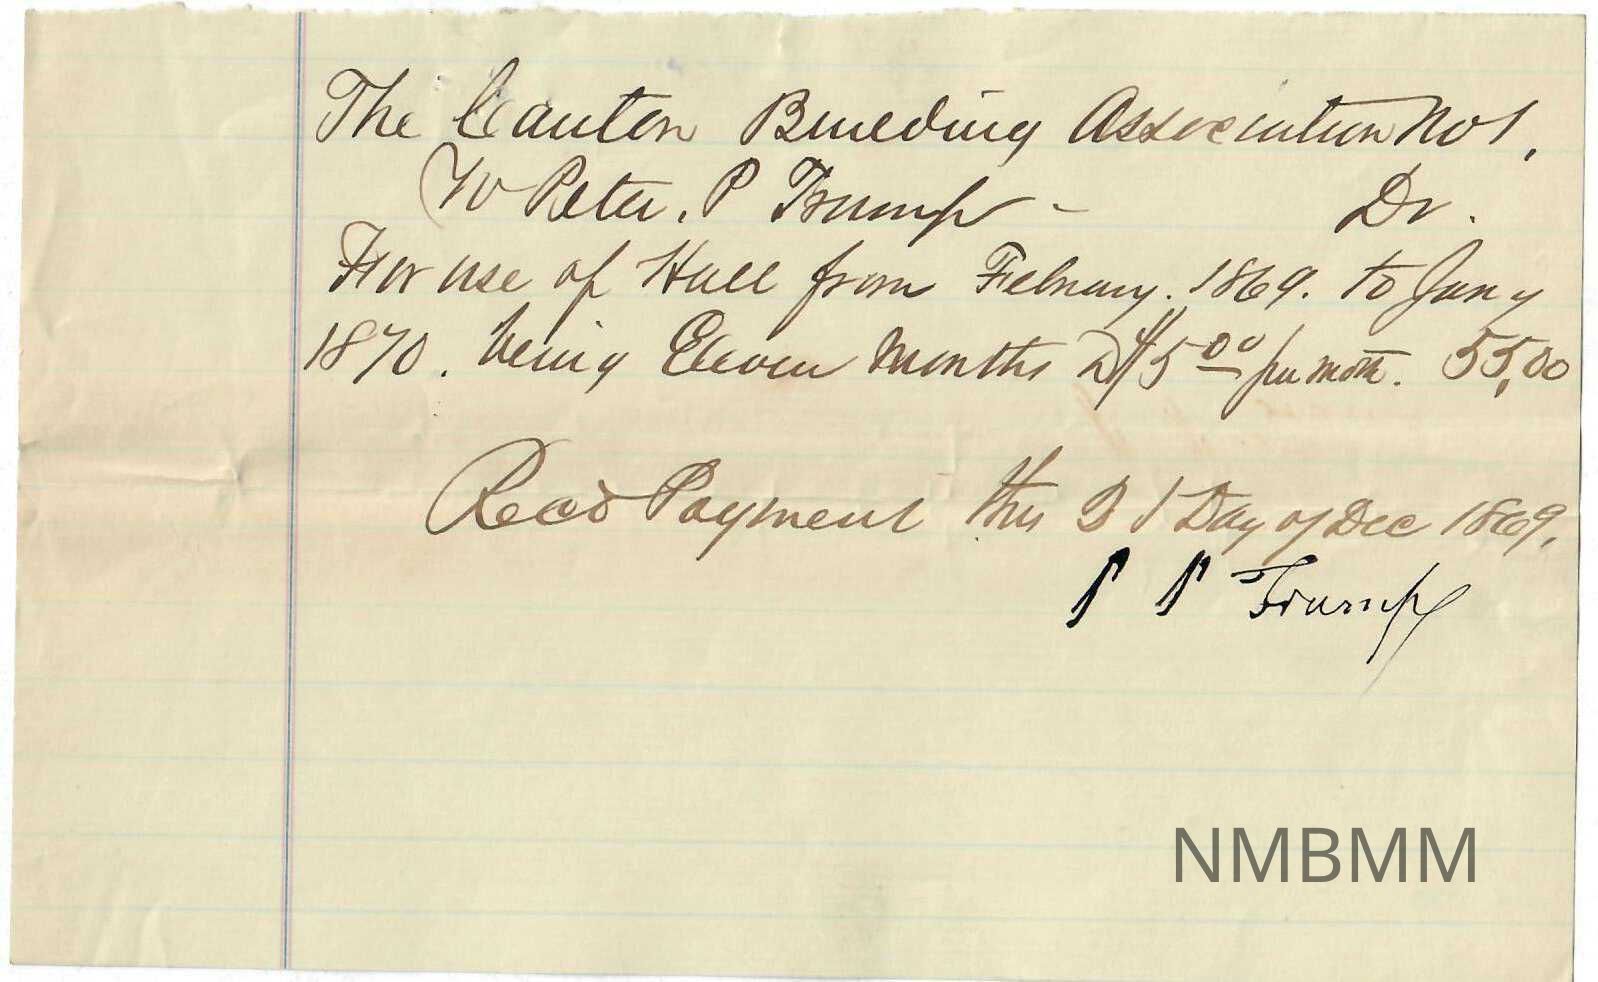 The Canton Building Association No 1.
To Peter. P Trump - Dr.
For use of Hall from February. 1869. to Jany
1870. being Eleven Months @ $5 00 per month. 55,00
Recd Payment this 31 Day of Dec 1869.
P P Trump
NMBMM